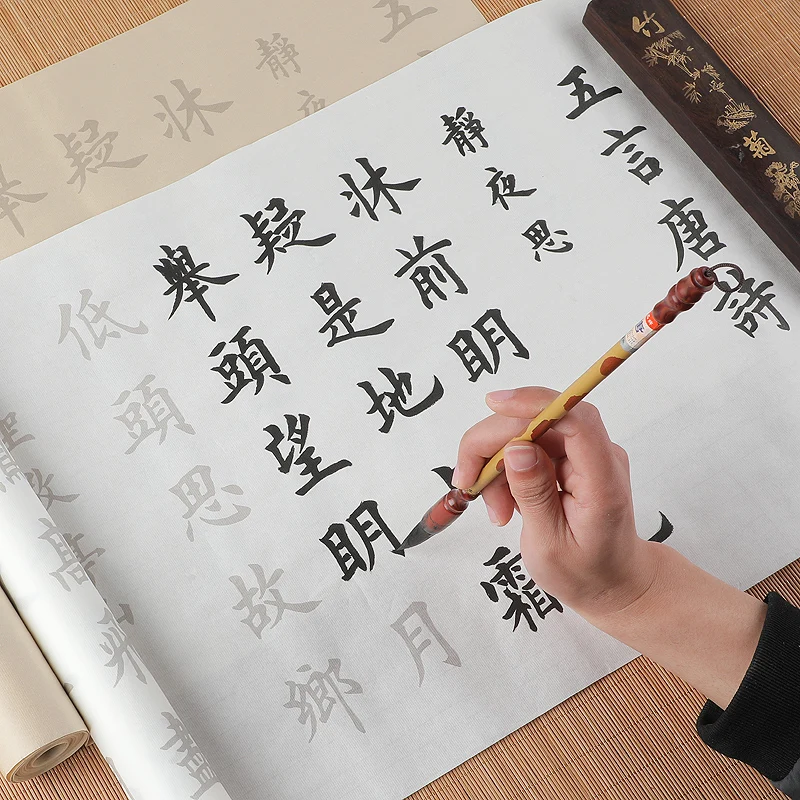 五言唐詩
靜夜思
牀前明
疑是地霜
舉頭望明月
低頭思故鄉
高飛盡
竹菊
五
靜夜
牀
疑
舉